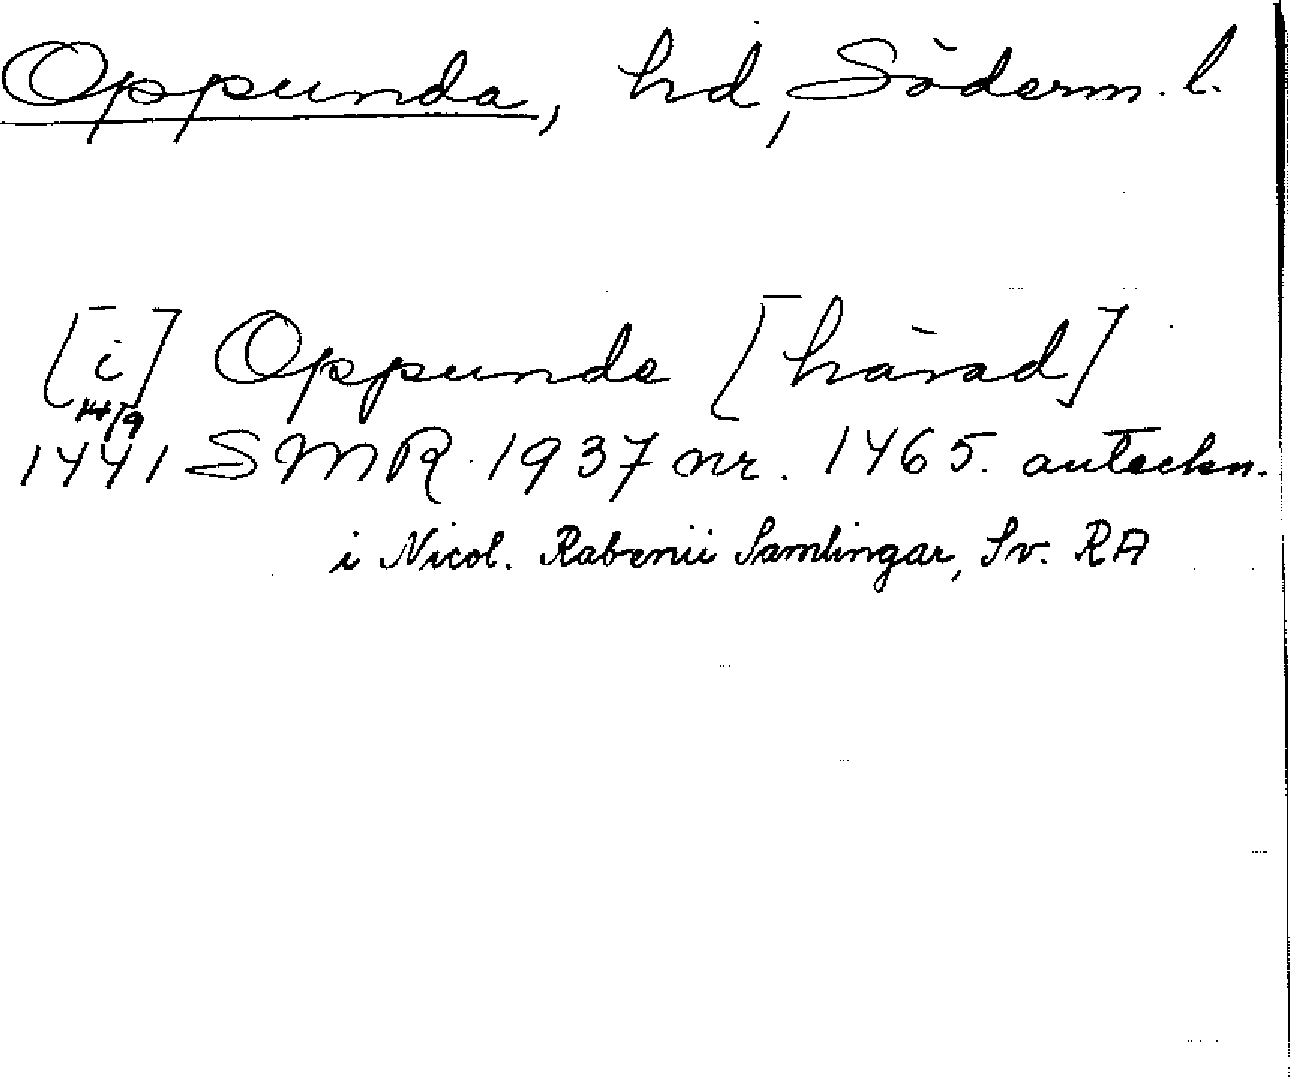 Oppunda, hd, Söderm. l.
[i] Oppunda [härad]
14/9
1441 SMR 1937 nr. 1465. anteckn.
i Nicol. Rabenii Samlingar, Sv. RA